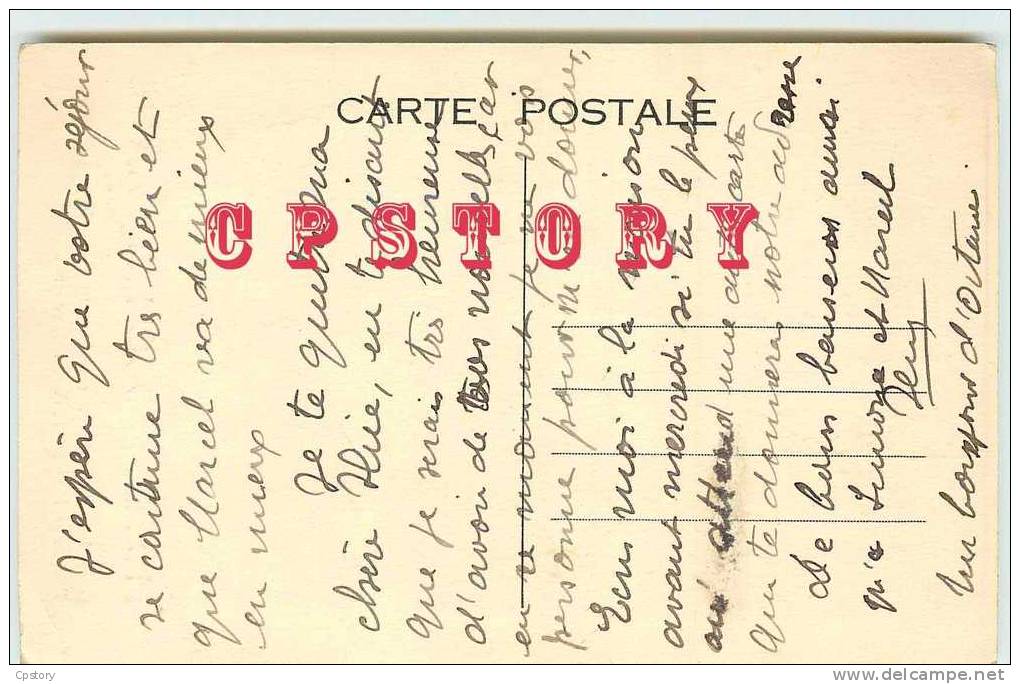 CARTE POSTALE
CPSTORY
J'espère que votre séjour
se continue très bien et
que Marcel va de mieux
en mieux
Je te quitte ma
chère en te disant
que je serais très heureuse
d'avoir de tes nouvelles, car
en ce moment je ne vois
personne pour m'en donner,
Ecris moi à la maison
avant mercredi si tu le peux
une autre carte
que te donnera notre adresse
De bons baisers aussi
qu'à et Marcel
Un bonjour d'Octave
Cpstory
www.delcampe.net